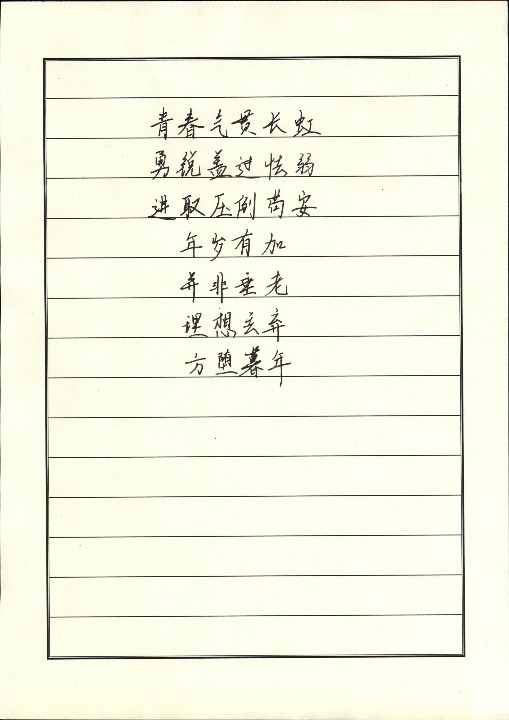 青春气贯长虹
勇锐盖过怯弱
进取压倒苟安
年岁有加
并非垂老
理想丢弃
方堕暮年